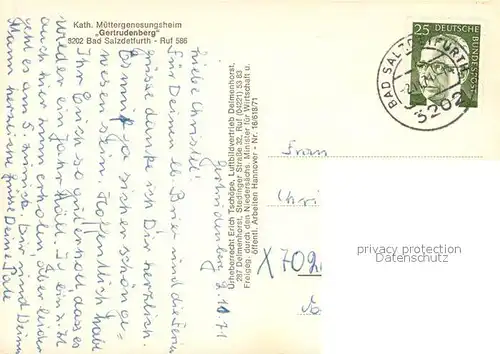 Kath. Müttergenesungsheim
„Gertrudenberg"
3202 Bad Salzdetfurth - Ruf 586
25
DEUTSCHE
BUNDESPOST
BAD SALZDETFURTH
3202
Gertrudenberg 2.10.71
Liebe Christel!
Für Deinen lb. Brief und die Ferien
grüsse danke ich Dir herzlich.
Es muß ja sicher schön ge-
wesen sein. Hoffentlich habt
Ihr Euch so gut erholt daß es
wieder ein Jahr hält. Ich
auch hier erholen, aber leider
geht es am 5. zurück. Dir und Deinem
Mann herzliche Grüsse Deine
Urheberrecht Erich Tschöpe, Luftbildvertrieb Delmenhorst,
287 Delmenhorst, Stedinger Straße 32, Ruf (04221) 53 83
Freigeg. durch den Niedersächs. Minister für Wirtschaft u.
öffentl. Arbeiten Hannover - Nr. 16/618/71
Frau
Chri
X702
privacy protection
AK-Ansichtskarten.de